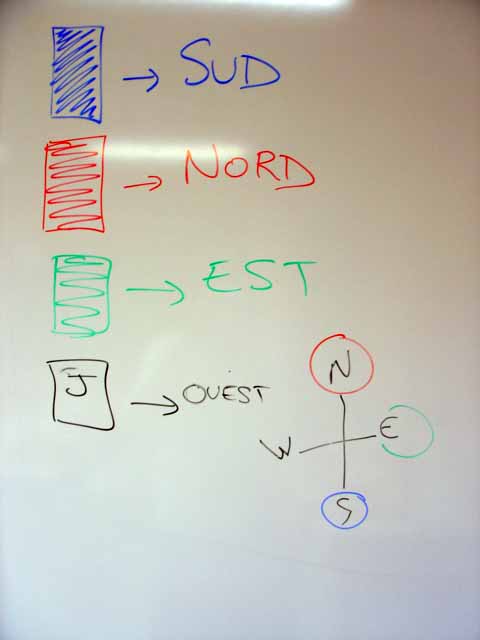 → SUD
→ NORD
→ EST
J → OUEST
N
W E
S